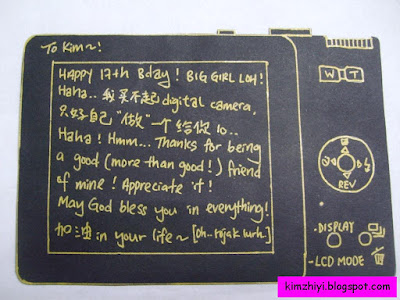 To Kim~!
HAPPY 17th Bday! BIG GIRL LOH!
Haha.. 我买不起 digital camera,
只好自己 "做" 一个给你 lo..
Haha! Hmm... Thanks for being
a good (more than good!) friend
of mine! Appreciate it!
May God bless you in everything!
加油 in your life~ [oh.. rojak lurh..]
W T
REV
DISPLAY
LCD MODE
kimzhiyi.blogspot.com